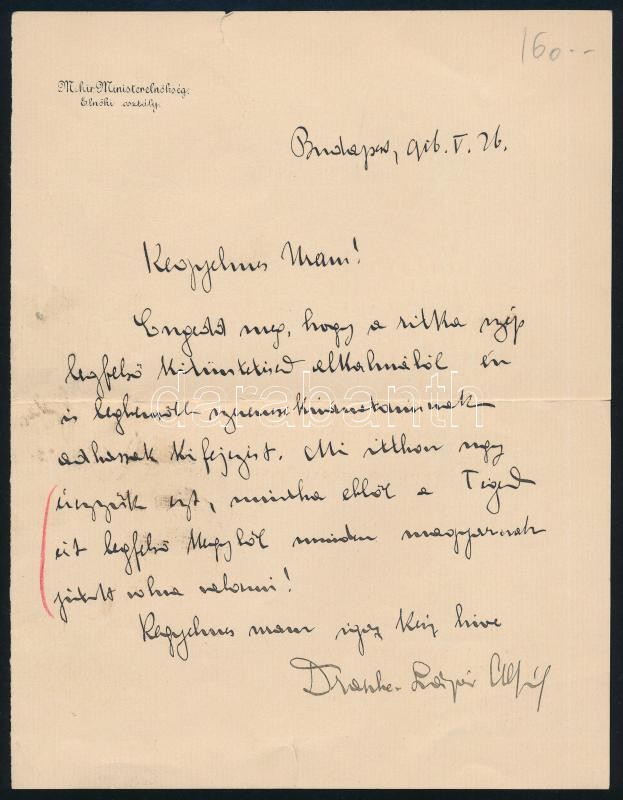 160.--
M. kir. Ministerelnökség.
Elnöki osztály.
Budapest, 916. V. 26.
Kegyelmes Uram!
Engedd meg, hogy a ritka szép
legfelső kitüntetésed alkalmából én
is legbensőbb szerencsekivánataimnak
adhassak kifejezést. Mi itthon úgy
érezzük ezt, mintha ebből a Téged
ért legfelső kegyből minden magyarnak
jutott volna valami!
Kegyelmes uram igaz kész hive
Drasche-Lázár Alfréd
darabanth